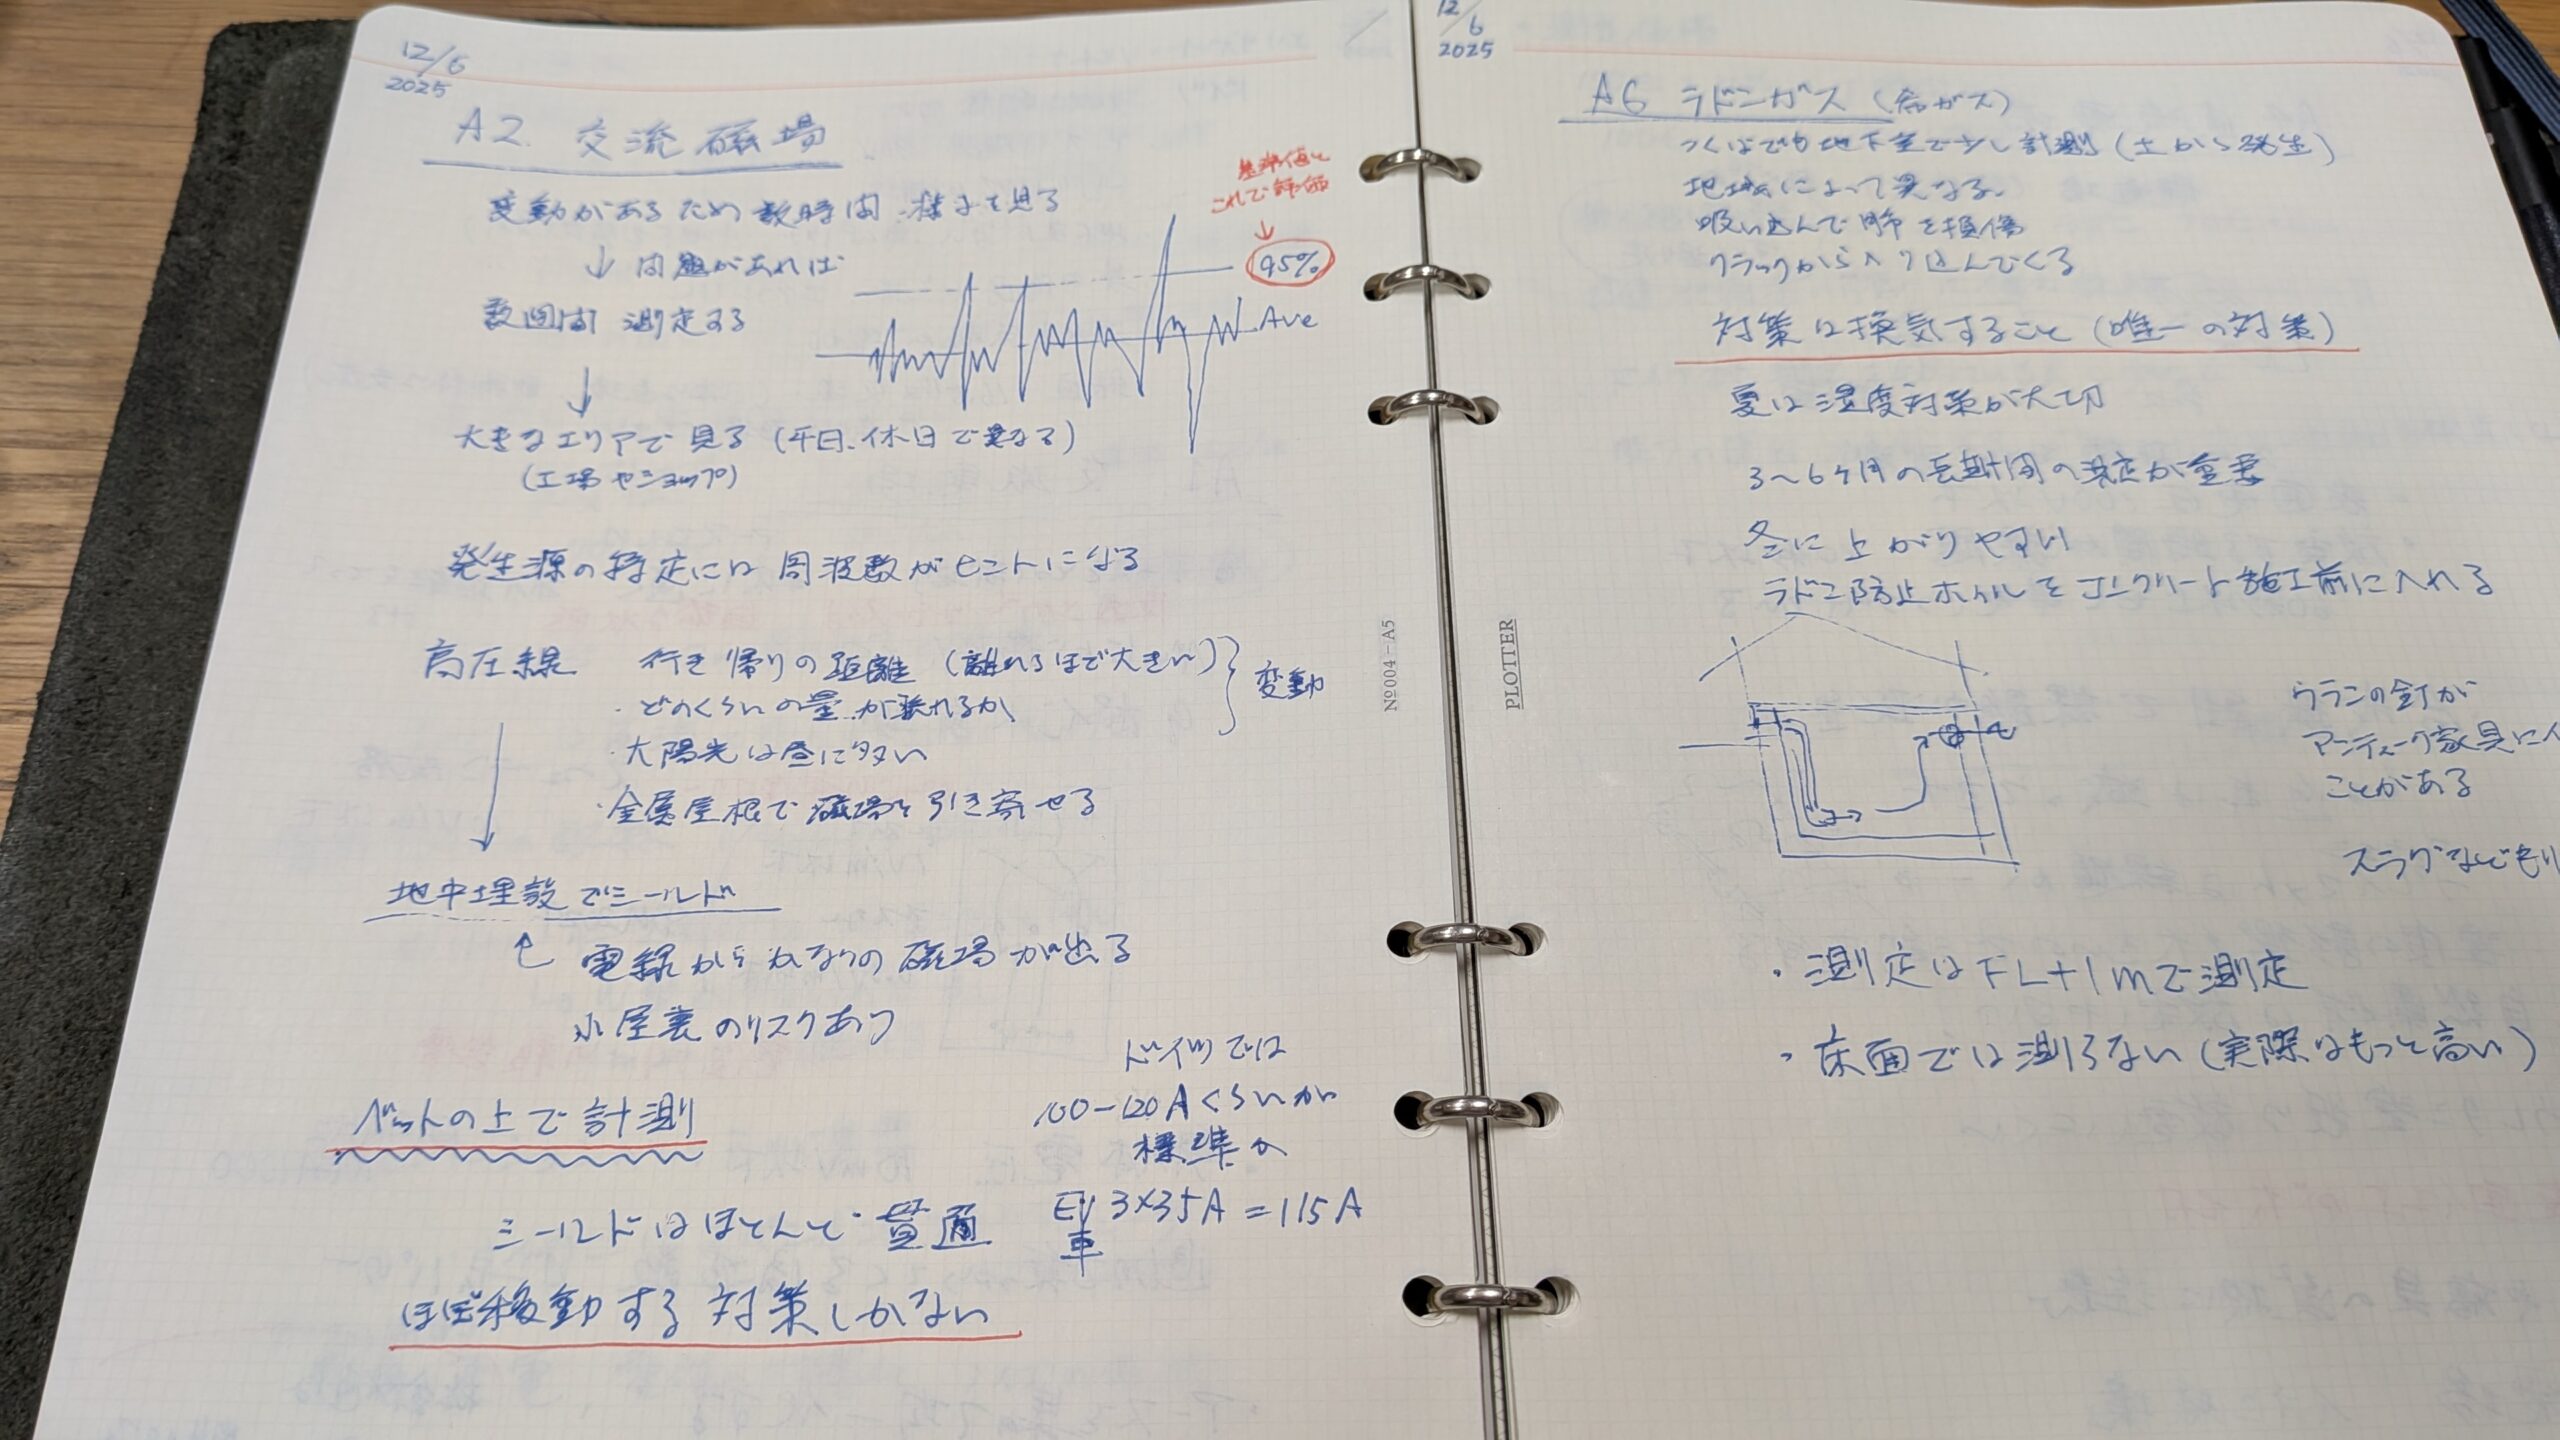 12/6
2025
A2. 交流磁場
変動があるため数時間 様子を見る
↓ 問題があれば
数週間 測定する
↓
大きなエリアで見る (平日、休日で異なる)
(工場やショップ)
基準値と
これで評価
↓
95%
Ave
発生源の特定には周波数がヒントになる
高圧線 行き帰りの距離 (離れるほど大きい)
・どのくらいの量が流れるか
変動
・太陽光は昼に多い
・金属屋根で磁場を引き寄せる
地中埋設でシールド
電線からかなりの磁場が出る
小屋裏のリスクあり
ベットの上で計測
ドイツでは
100-120Aくらいが
標準か
シールドはほとんど貫通
EV車 3×35A=115A
ほぼ移動する対策しかない
Nº004-A5
12/6
2025
A6 ラドンガス (希ガス)
つくばでも地下室で少し計測 (土から発生)
地域によって異なる。
吸い込んで肺を損傷
クラックから入り込んでくる
対策は換気すること (唯一の対策)
夏は湿度対策が大切
3～6ヶ月の長期間の測定が重要
冬に上がりやすい
ラドン防止ホイルをコンクリート施工前に入れる
ウランの釘が
アンティーク家具に
ことがある
スラグなども
・測定はFL+1mで測定
・床面では測らない (実際はもっと高い)
PLOTTER